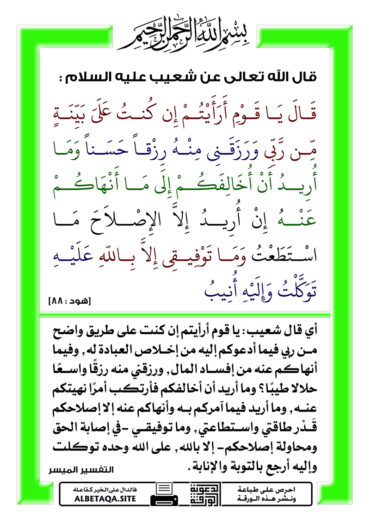 بسم الله الرحمن الرحيم
قال الله تعالى عن شعيب عليه السلام :
قَالَ يَـا قَـوْمِ أَرَأَيْتُـمْ إِن كُنـتُ عَلَىَ بَيِّنَـةٍ
مِّـن رَّبِّي وَرَزَقَـنِي مِنْـهُ رِزْقـاً حَسَـناً وَمَـا
أُرِيـدُ أَنْ أُخَالِفَكُـمْ إِلَى مَـا أَنْهَاكُـمْ
عَنْـهُ إِنْ أُرِيـدُ إِلاَّ الإِصْـلاَحَ مَـا
اسْـتَطَعْتُ وَمَـا تَوْفِيـقِي إِلاَّ بِـاللّهِ عَلَيْـهِ
تَوَكَّلْتُ وَإِلَيْهِ أُنِيبُ
[هود : ٨٨]
أي قال شعيب: يا قوم أرأيتم إن كنت على طريق واضح
مـن ربي فيما أدعوكم إليه من إخـلاص العبادة له , وفيما
أنهاكم عنه من إفسـاد المال , ورزقني منه رزقًا واسـعًا
حلالا طيبًا؟ وما أريد أن أخالفكم فأرتكـب أمرًا نهيتكم
عنـه , وما أريد فيما آمركم بـه وأنهاكم عنه إلا إصلاحكم
قَـدْر طاقتي واسـتطاعتي, وما توفيقـي -في إصابة الحق
ومحاولة إصلاحكم- إلا بالله , على الله وحده توكلـت
وإليه أرجع بالتوبة والإنابة .
التفسير الميسر
احرص على طباعة
ونشر هذه الورقة
فالدال على الخير كفاعله
ALBETAQA.SITE